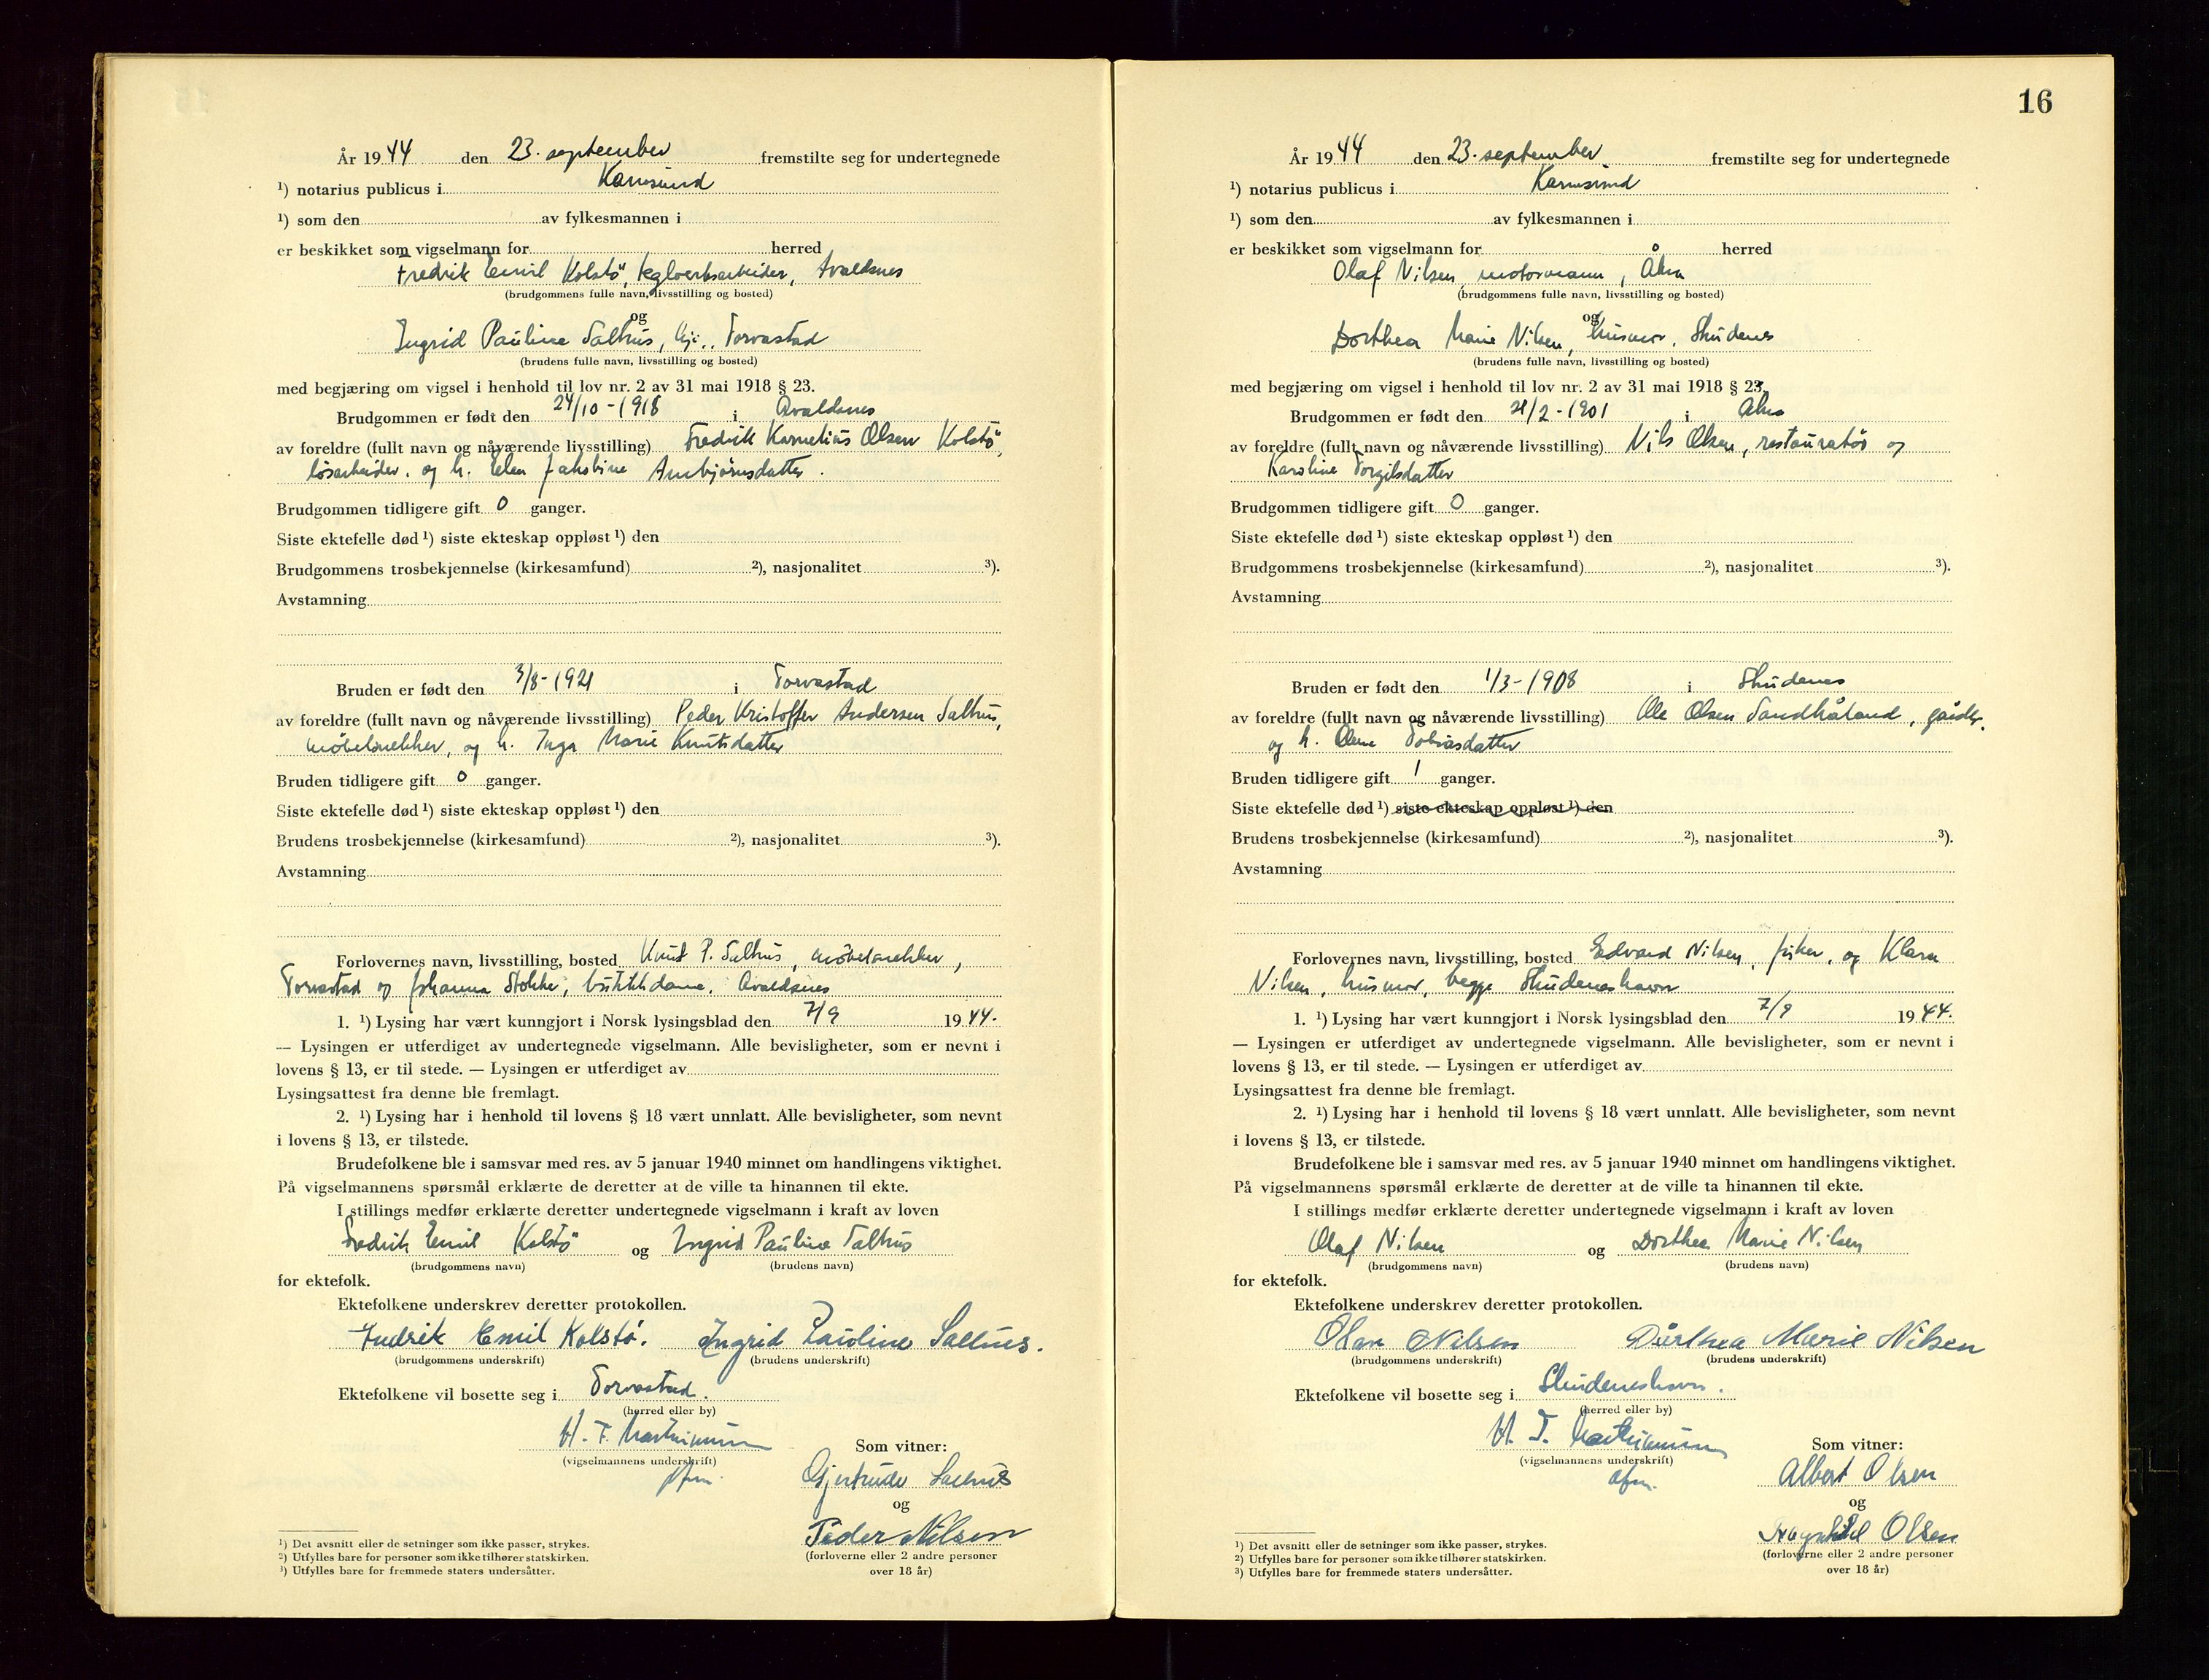 År 1944 den 23. september fremstilte seg for undertegnede
¹) notarius publicus i Karmsund
¹) som den av fylkesmannen i
er beskikket som vigselmann for herred
Fredrik Emil Kolstö, teglverksarbeider, Avaldsnes
(brudgommens fulle navn, livsstilling og bosted)
og
Ingrid Pauline Salhus, Torvastad
(brudens fulle navn, livsstilling og bosted)
med begjæring om vigsel i henhold til lov nr. 2 av 31 mai 1918 § 23.
Brudgommen er født den 24/10-1918 i Avaldsnes
av foreldre (fullt navn og nåværende livsstilling) Fredrik Kornelius Olsen Kolstö,
løsarbeider, og h. Elen Jakobine Ambjørnsdatter.
Brudgommen tidligere gift 0 ganger.
Siste ektefelle død ¹) siste ekteskap oppløst ¹) den
Brudgommens trosbekjennelse (kirkesamfund) ²), nasjonalitet ³).
Avstamning
Bruden er født den 3/8-1921 i Torvastad
av foreldre (fullt navn og nåværende livsstilling) Peder Kristoffer Andersen Salhus,
møbelsnekker, og h. Inga Marie Knutsdatter
Bruden tidligere gift 0 ganger.
Siste ektefelle død ¹) siste ekteskap oppløst ¹) den
Brudens trosbekjennelse (kirkesamfund) ²), nasjonalitet ³).
Avstamning
Forlovernes navn, livsstilling, bosted Knut P. Salhus, møbelsnekker,
Torvastad og Johanna Stokke, butikkdame, Avaldsnes
1. ¹) Lysing har vært kunngjort i Norsk lysingsblad den 7/9 1944.
— Lysingen er utferdiget av undertegnede vigselmann. Alle bevisligheter, som er nevnt i
lovens § 13, er til stede. — Lysingen er utferdiget av
Lysingsattest fra denne ble fremlagt.
2. ¹) Lysing har i henhold til lovens § 18 vært unnlatt. Alle bevisligheter, som nevnt
i lovens § 13, er tilstede.
Brudefolkene ble i samsvar med res. av 5 januar 1940 minnet om handlingens viktighet.
På vigselmannens spørsmål erklærte de deretter at de ville ta hinannen til ekte.
I stillings medfør erklærte deretter undertegnede vigselmann i kraft av loven
Fredrik Emil Kolstö og Ingrid Pauline Salhus
(brudgommens navn) (brudens navn)
for ektefolk.
Ektefolkene underskrev deretter protokollen.
Fredrik Emil Kolstö. Ingrid Pauline Salhus.
(brudgommens underskrift) (brudens underskrift)
Ektefolkene vil bosette seg i Torvastad.
(herred eller by)
H. F.
(vigselmannens underskrift)
Som vitner:
Gjertrude Salhus
og
Peder Nilsen
(forloverne eller 2 andre personer
over 18 år)
¹) Det avsnitt eller de setninger som ikke passer, strykes.
²) Utfylles bare for personer som ikke tilhører statskirken.
³) Utfylles bare for fremmede staters undersåtter.
16
År 1944 den 23. september fremstilte seg for undertegnede
¹) notarius publicus i Karmsund
¹) som den av fylkesmannen i
er beskikket som vigselmann for herred
Olaf Nilsen, motormann, Åkra
(brudgommens fulle navn, livsstilling og bosted)
og
Dorthea Marie Nilsen, husmor, Skudenes
(brudens fulle navn, livsstilling og bosted)
med begjæring om vigsel i henhold til lov nr. 2 av 31 mai 1918 § 23.
Brudgommen er født den 21/2-1901 i Åkra
av foreldre (fullt navn og nåværende livsstilling) Nils Olsen, restauratör og
Karoline Torgilsdatter
Brudgommen tidligere gift 0 ganger.
Siste ektefelle død ¹) siste ekteskap oppløst ¹) den
Brudgommens trosbekjennelse (kirkesamfund) ²), nasjonalitet ³).
Avstamning
Bruden er født den 1/3-1908 i Skudenes
av foreldre (fullt navn og nåværende livsstilling) Ole Olsen Sandhåland, gårdbr.
og h. Olene Tobiasdatter
Bruden tidligere gift 1 ganger.
Siste ektefelle død ¹) siste ekteskap oppløst ¹) den
Brudens trosbekjennelse (kirkesamfund) ²), nasjonalitet ³).
Avstamning
Forlovernes navn, livsstilling, bosted Edvard Nilsen, fisker, og Klara
Nilsen, husmor, begge Skudeneshavn
1. ¹) Lysing har vært kunngjort i Norsk lysingsblad den 7/9 1944.
— Lysingen er utferdiget av undertegnede vigselmann. Alle bevisligheter, som er nevnt i
lovens § 13, er til stede. — Lysingen er utferdiget av
Lysingsattest fra denne ble fremlagt.
2. ¹) Lysing har i henhold til lovens § 18 vært unnlatt. Alle bevisligheter, som nevnt
i lovens § 13, er tilstede.
Brudefolkene ble i samsvar med res. av 5 januar 1940 minnet om handlingens viktighet.
På vigselmannens spørsmål erklærte de deretter at de ville ta hinannen til ekte.
I stillings medfør erklærte deretter undertegnede vigselmann i kraft av loven
Olaf Nilsen og Dorthea Marie Nilsen
(brudgommens navn) (brudens navn)
for ektefolk.
Ektefolkene underskrev deretter protokollen.
Olav Nilsen Dorthea Marie Nilsen
(brudgommens underskrift) (brudens underskrift)
Ektefolkene vil bosette seg i Skudeneshavn.
(herred eller by)
H. F.
(vigselmannens underskrift)
Som vitner:
Albert Olsen
og
Ragnhild Olsen
(forloverne eller 2 andre personer
over 18 år)
¹) Det avsnitt eller de setninger som ikke passer, strykes.
²) Utfylles bare for personer som ikke tilhører statskirken.
³) Utfylles bare for fremmede staters undersåtter.